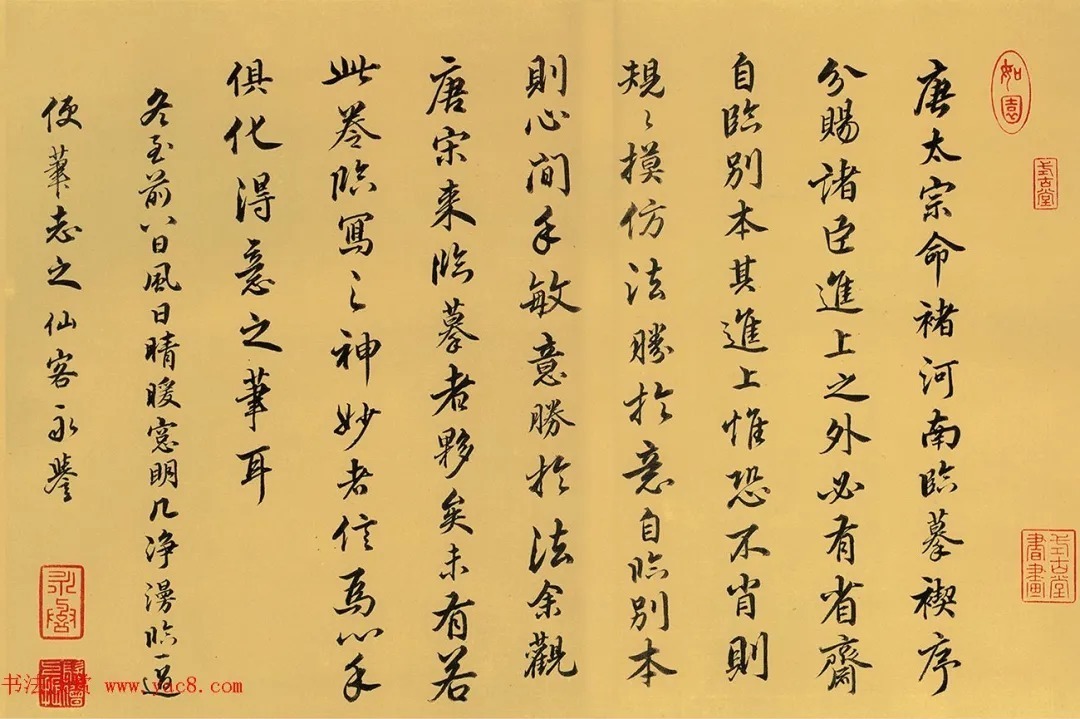 如園
式古堂
式古堂書畫
唐太宗命褚河南臨摹禊序
分賜諸臣進上之外必有省齋
自臨別本其進上惟恐不肖則
規〻摸仿法勝於意自臨別本
則心間手敏意勝於法余觀
唐宋来臨摹者夥矣未有若
此卷臨寫之神妙者信為心手
俱化得意之筆耳
冬至前八日風日晴暖窓明几净漫臨一過
便筆志之仙客永譽
书法 赏 www.yac8.com